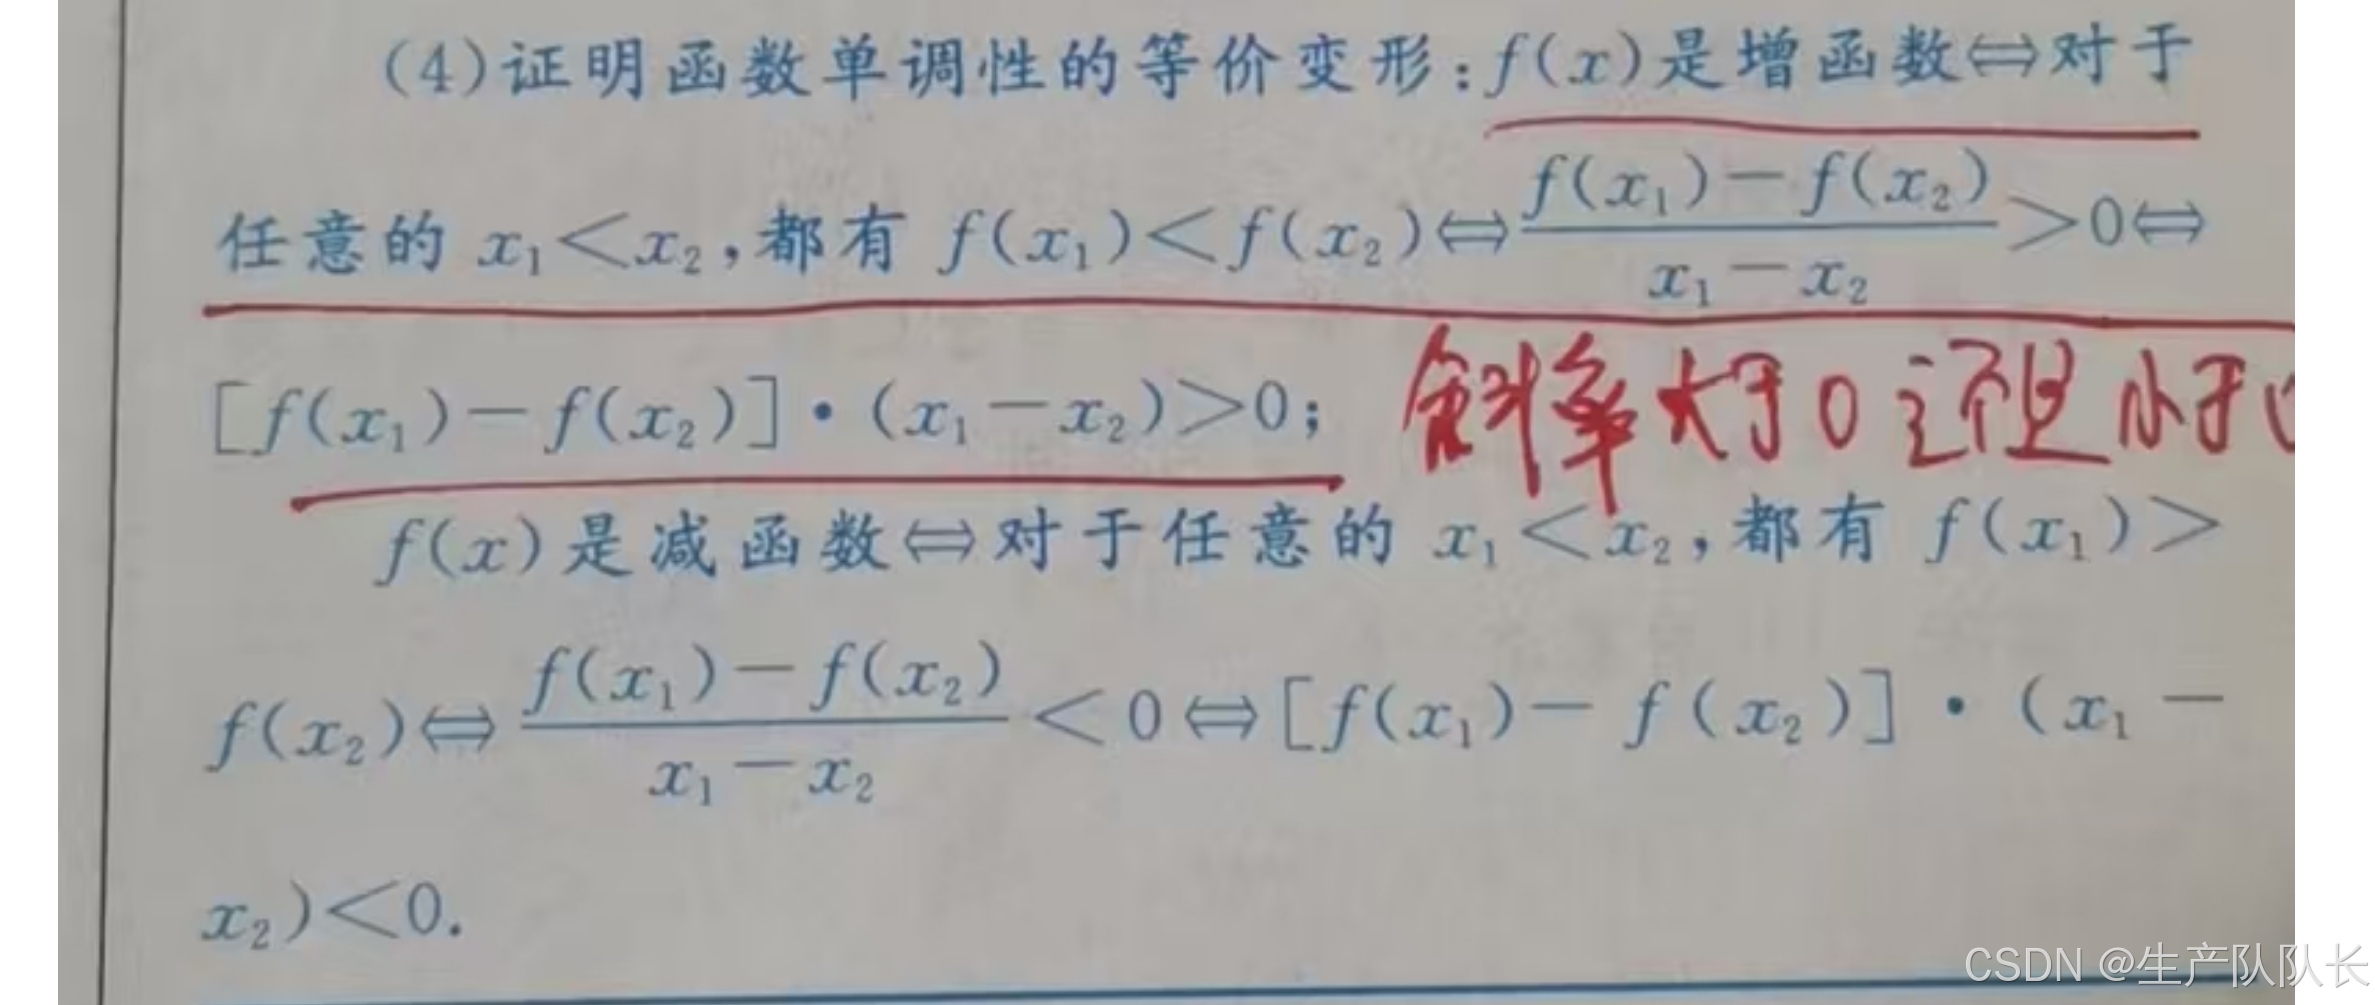 (4)证明函数单调性的等价变形:f(x)是增函数⇔对于
任意的 x₁<x₂,都有 f(x₁)<f(x₂)⇔\frac{f(x₁)-f(x₂)}{x₁-x₂}>0⇔
[f(x₁)-f(x₂)]·(x₁-x₂)>0;
斜率大于0还是小于0
f(x)是减函数⇔对于任意的 x₁<x₂,都有 f(x₁)>
f(x₂)⇔\frac{f(x₁)-f(x₂)}{x₁-x₂}<0⇔[f(x₁)-f(x₂)]·(x₁-
x₂)<0.
CSDN @生产队队长